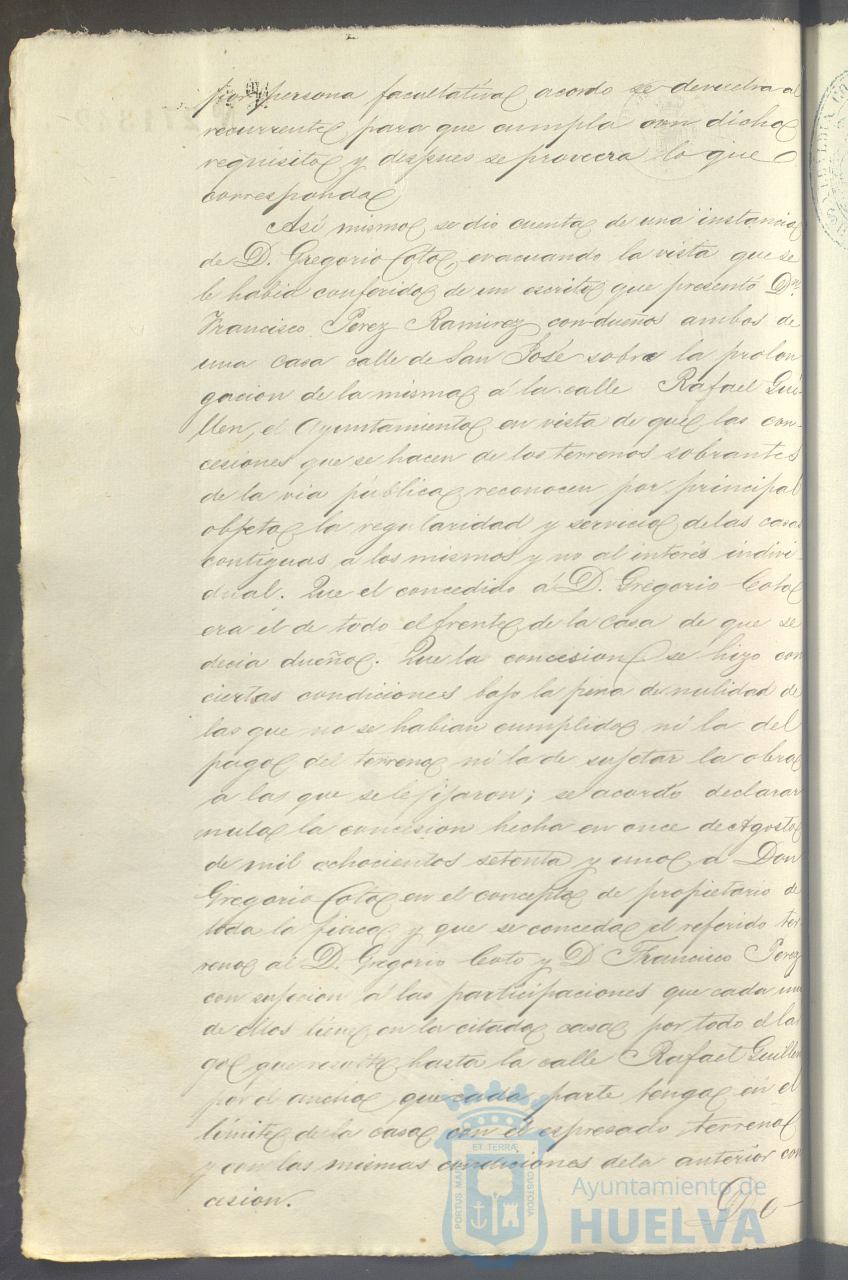 por persona facultativa acordo se devuelva al
recurrente para que cumpla con dicho
requisito y despues se proveera lo que
corresponda
Así mismo se dio cuenta de una instancia
de D. Gregorio Coto, evacuando la vista que se
le habia conferido de un escrito que presentó Dn.
Francisco Perez Ramirez con-dueños ambos de
una casa calle de San José sobre la prolon
gacion de la misma á la calle Rafael Gui-
llen, el Ayuntamiento en vista de que las con-
cesiones que se hacen de los terrenos sobrantes
de la via pública reconocen por principal
objeto la regularidad y servicio de las casas
contiguas a los mismos y no al interés indivi
dual. Que el concedido á D. Gregorio Coto
era él de todo el frente de la casa de que se
decia dueño. Que la concesion se hizo con
ciertas condiciones bajo la pena de nulidad de
las que no se habian cumplido ni la del
pago del terreno ni la de sujetar la obra
a las que se le fijaron; se acordó declarar
nulo la concesion hecha en once de Agosto
de mil ochocientos setenta y uno á Don
Gregorio Coto en el concepto de propietario de
toda la finca y que se conceda el referido ter
reno al D. Gregorio Coto y D Francisco Perez
con sujecion á las participaciones que cada uno
de ellos tiene en la citada casa por todo el lar
go que resulte hasta la calle Rafael Guillen
por el ancho que cada parte tenga en el
límite de la casa con el espresado terreno
y con las mismas condiciones de la anterior con
cesion.
ET TERRÆ
PORTUS MARIS
CUSTODIA
Ayuntamiento de
HUELVA